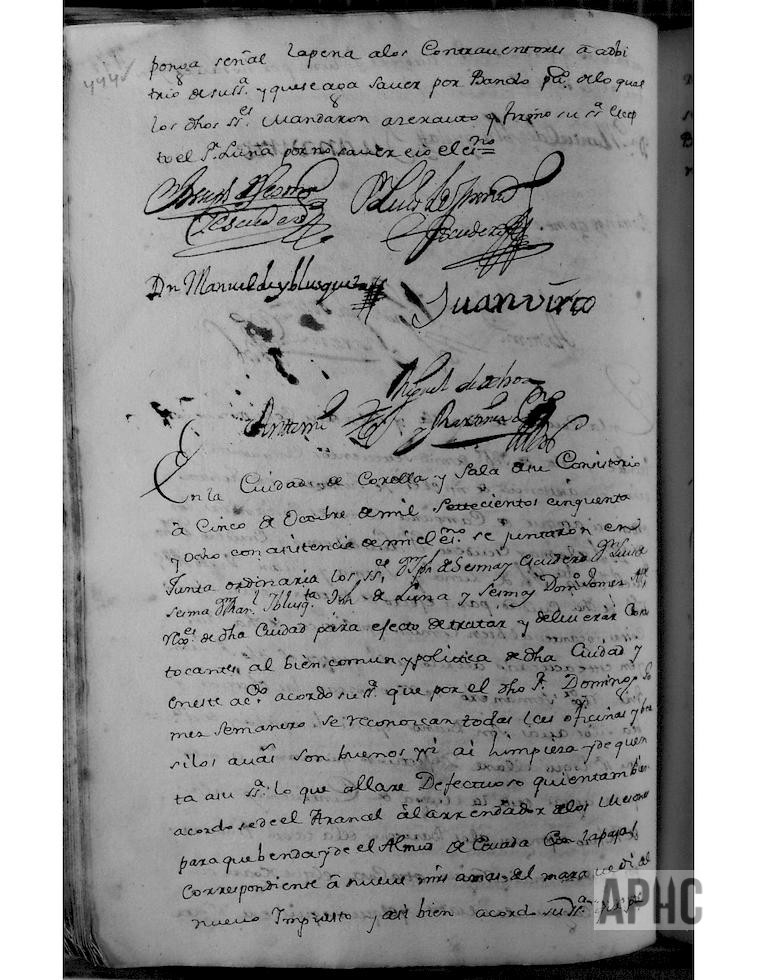 ponga señal la pena a los Contraventores a adbi
trio de su Sª. y que se aga Saver por Bando pª. de lo qual
los dhos Srs. Mandaron acer auto y firmo su Sª. Ecep
to el Sr. Luna por no saver e yo el esno
Joseph de Sesma
Escudero
Dn Luis de Sesma
Escudero
Dn Manuel de Yblusquez
Juan virto
Miguel de ochoa
Antemi
En la Ciudad de Corella y Sala de su Consistorio
â Cinco de Octubre de mil Settecientos cinquenta
y ocho con asistencia de mi el esno. se juntaron en
Junta ordinaria los SSes. Dn Jph de Sesma y Escudero Dn Luis de
Sesma Dn Manl. Yblusqta. Jph de Luna y Sesma y Domo. Jomer
Rres. de dha Ciudad para efecto de tratar y deliverar Cosas
tocantes al bien comun y politica de dha Ciudad y
en este acto acordo su Sª. que por el dho Sr. Domingo Jo
mer Semanero se reconozcan todas las oficinas y bea
si los avas son buenos y si ai limpieza y de quen
ta a su Sª. lo que allare Defectuoso quien tambien
acordo se de el Arancel âl arrendador de los Mesones
para que benda y de el Almud de Cevada Con la paja
Correspondiente â nueve mrs amas del maravedi del
nuevo Impuesto y asi bien acordo su Sª. que se
444
APHC